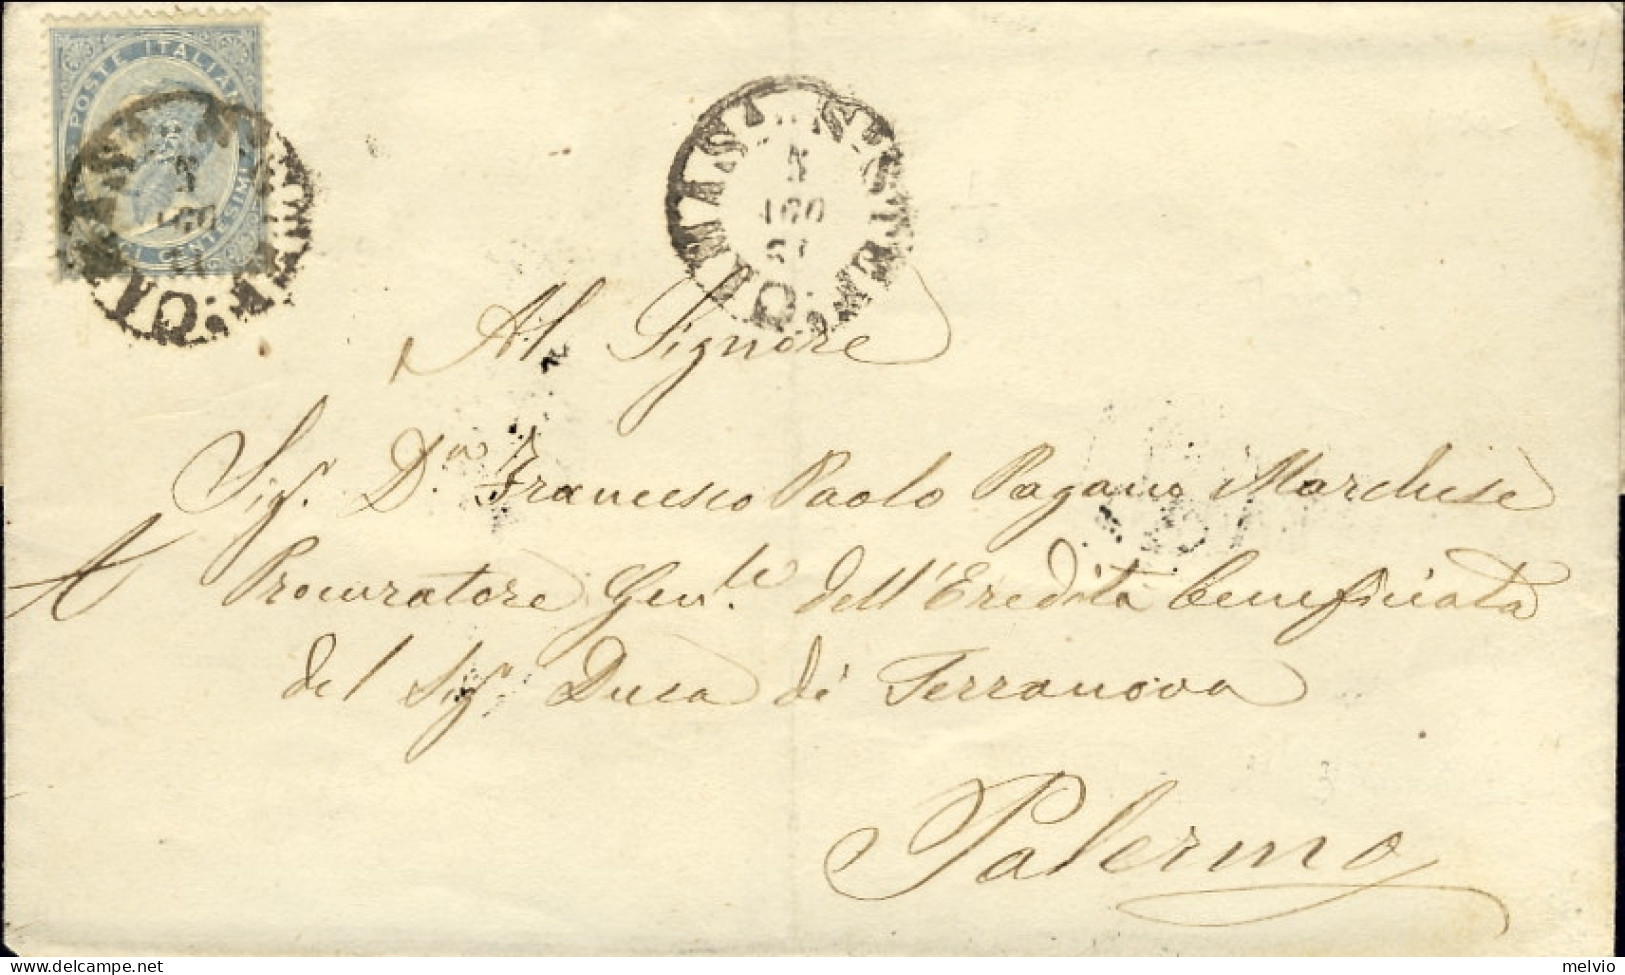 POSTE ITALIANE
CENTESIMI
Al Signore
Sigr. D.n Francesco Paolo Pagano Marchese
Procuratore Genle. dell'Eredità beneficiata
del Sigr. Duca di Terranova
Palermo
melvio